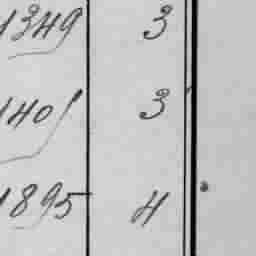 1349 3
1401 3
1895 4